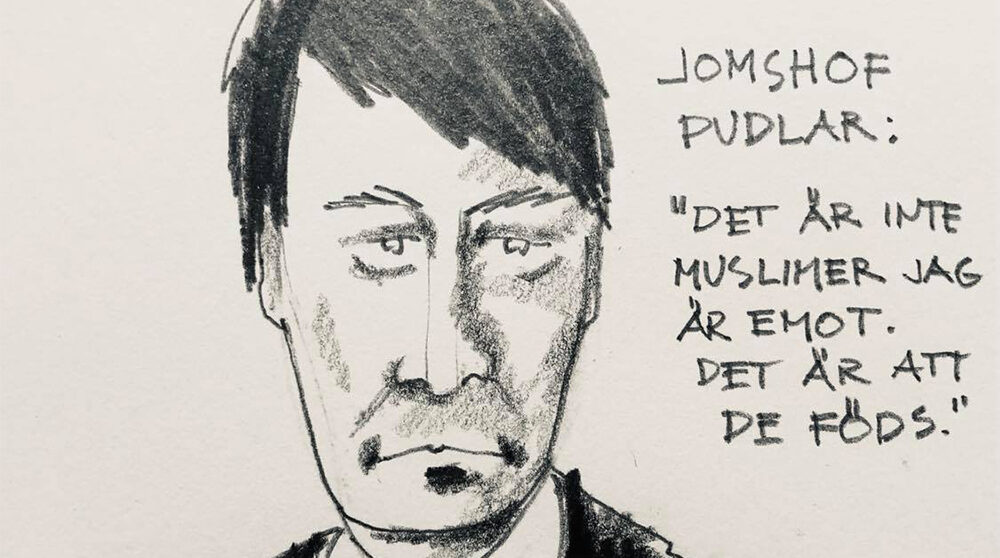 JOMSHOF
PUDLAR:
"DET ÄR INTE
MUSLIMER JAG
ÄR EMOT.
DET ÄR ATT
DE FÖDS."